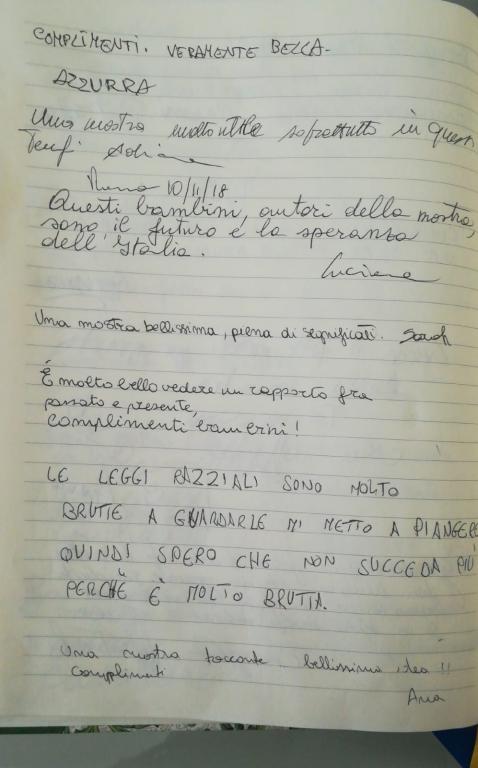 COMPLIMENTI. VERAMENTE BELLA-
AZZURRA
Una mostra molto utile soprattutto in questi
tempi Adriana
10/11/18
Questi bambini, autori della mostra,
sono il futuro e la speranza
dell'Italia.
Luciana
Una mostra bellissima, piena di significati. Sarah
È molto bello vedere un rapporto fra
passato e presente,
complimenti bambini!
LE LEGGI RAZZIALI SONO MOLTO
BRUTTE A GUARDARLE MI METTO A PIANGERE
QUINDI SPERO CHE NON SUCCEDA PIÙ
PERCHÈ È MOLTO BRUTTA.
Una mostra toccante.. bellissima idea!!
Complimenti